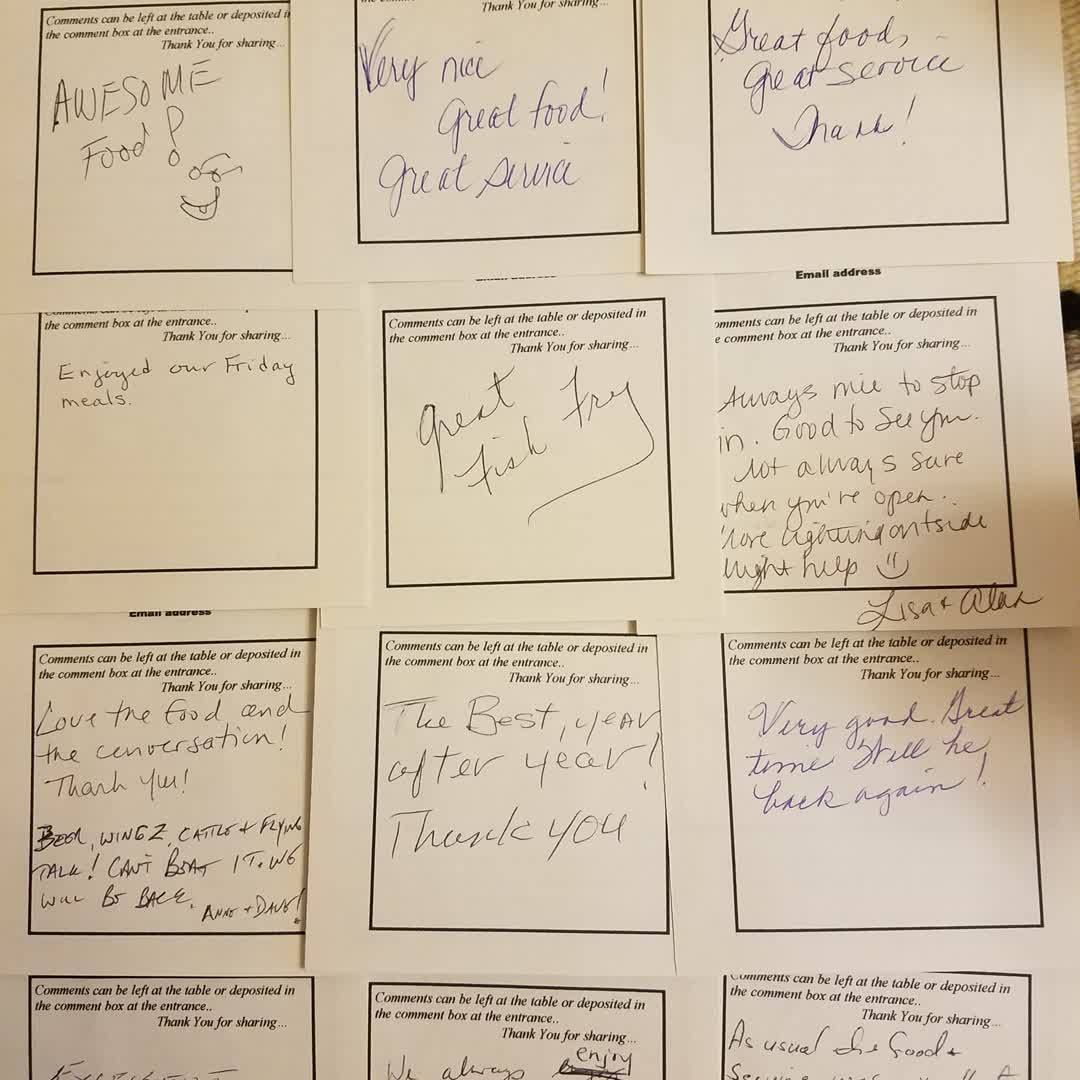 Comments can be left at the table or deposited in
the comment box at the entrance..
Thank You for sharing...
AWESOME
Food!
Thank You for sharing...
Very nice
Great food!
Great service
Great food,
Great service
Thank!
Comments can be left at the table or deposited
the comment box at the entrance..
Thank You for sharing...
Enjoyed our Friday
meals.
Comments can be left at the table or deposited in
the comment box at the entrance..
Thank You for sharing...
Great
Fish Fry
Email address
omments can be left at the table or deposited in
e comment box at the entrance..
Thank You for sharing...
Always nice to stop
in. Good to see you.
Not always sure
when you're open.
More lighting outside
might help
Lisa + Alan
Email address
Comments can be left at the table or deposited in
the comment box at the entrance..
Thank You for sharing...
Love the food and
the conversation!
Thank you!
BEER, WINGZ, CATTLE + FLYING
TALK! CAN'T BEAT IT. WE
WILL BE BACK.
ANNE + DAVE!
Comments can be left at the table or deposited in
the comment box at the entrance..
Thank You for sharing...
The Best, year
after year!
Thank you
Comments can be left at the table or deposited in
the comment box at the entrance..
Thank You for sharing...
Very good. Great
time Will be
back again!
Comments can be left at the table or deposited in
the comment box at the entrance..
Thank You for sharing...
Comments can be left at the table or deposited in
the comment box at the entrance..
Thank You for sharing...
We always enjoy
Comments can be left at the table or deposited in
the comment box at the entrance..
Thank You for sharing...
As usual the food +